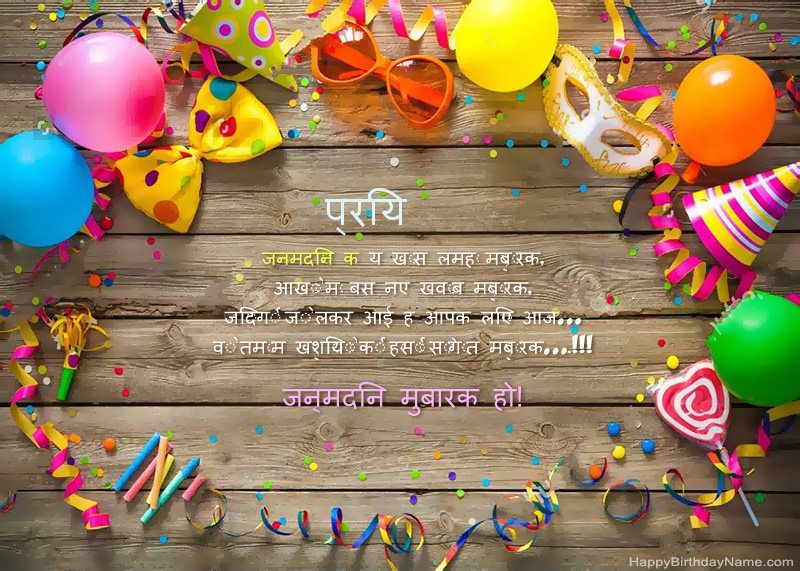 प्रिय
जनमदिन क य ख़ास लमहा मुबारक,
आखों में बसे नए ख्वाब मुबारक,
जिंदगी जो लेकर आई है आपके लिए आज...
वो तमाम खुशियों की हंसीं सौगात मुबारक...!!!
जन्मदिन मुबारक हो!
HappyBirthdayName.com